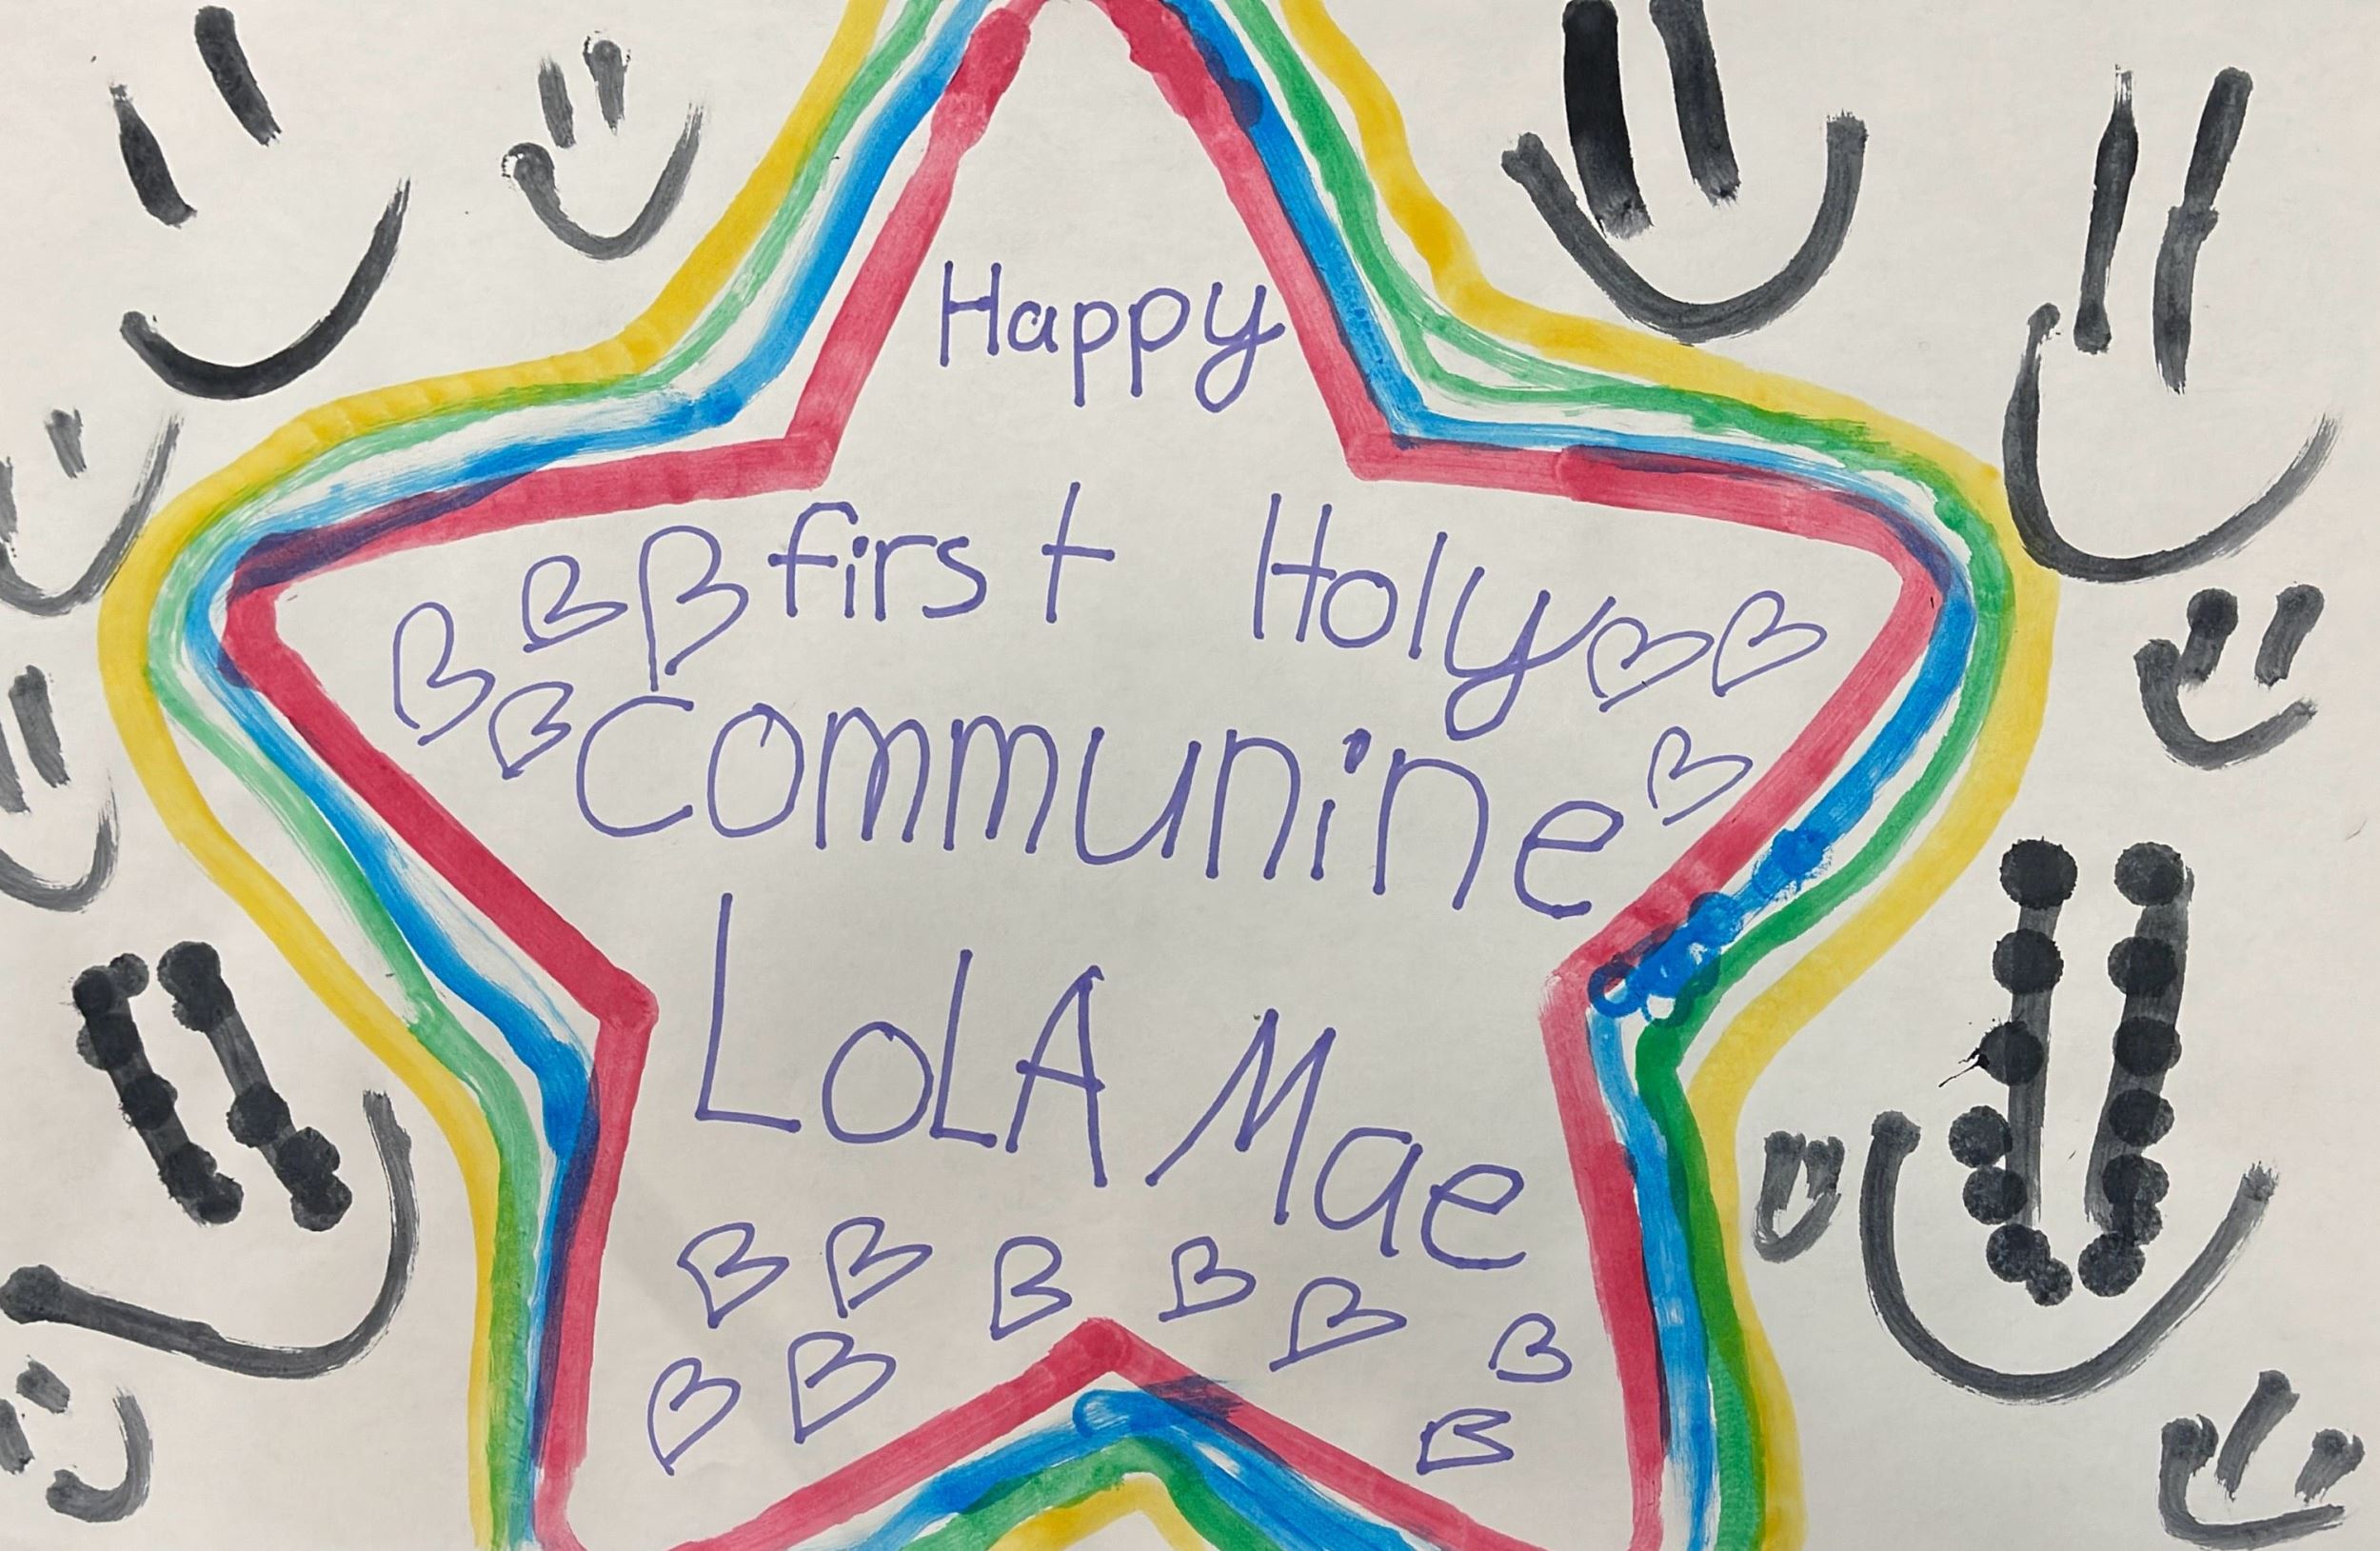 Happy
first Holy
Communine
LoLA Mae